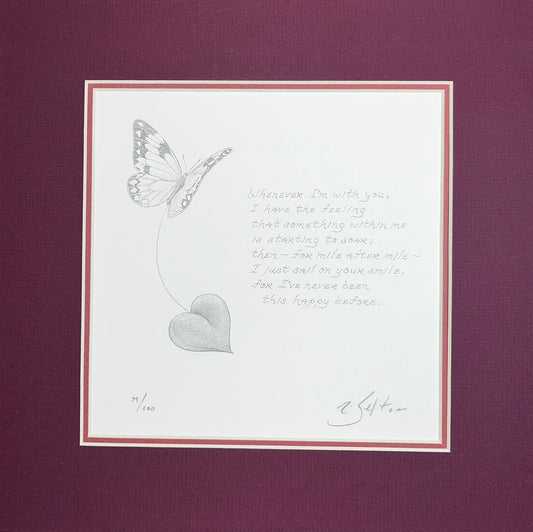 Whenever I'm with you,
I have the feeling
that something within me
is starting to soar;
then ~ for mile after mile ~
I just sail on your smile,
for I've never been
this happy before.